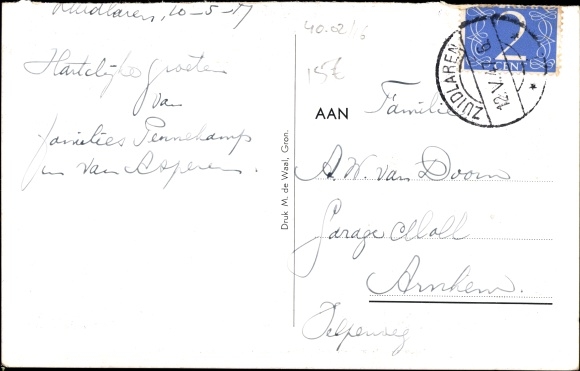 Zuidlaren, 10-5-47
Hartelijke groeten
van
families Pennekamp
en van Asperen.
40.02/16
15E
Druk M. de Waal, Gron.
2
CENT
ZUIDLAREN
12.V.47
AAN Familie
A.W. van Doorn
Garage Moll
Arnhem.
Velperweg